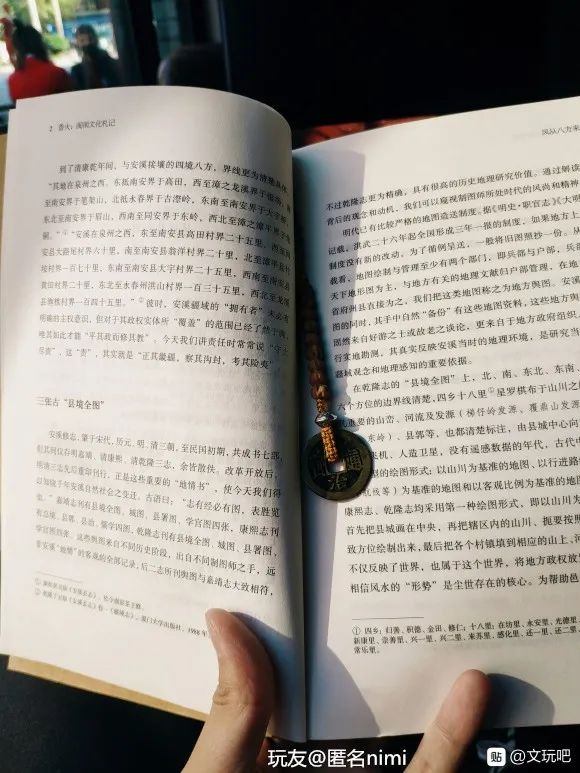 2 香火：闽南文化札记
到了清康乾年间，与安溪接壤的四境八方，界线更为清楚具体，
“其地在泉州之西。东抵南安界于高田，西至漳之龙溪界于
至南安界于笔架山，北抵永春界于古澄岭，东南至南安界于大宇
东北至南安界于眉山，西南至同安界于东岭，西北至漳之漳平界于
“安溪在泉州之西，东至南安县高田村界二十五里，西至
安县大路尾村界六十里，南至南安县翁洋村界二十里，北至漳平县
坡村界一百七十里，东南至南安县大宇村界二十五里，西南至南安县
黄田村界二十里，东北至永春州洪山村界一百三十五里，西北至龙溪
县地界一百四十五里。”彼时，安溪疆域的“拥有者”未必有
明确的主权意识，但对于其政权实体所“覆盖”的范围已经了然于胸，
唯其如此才能“平其政而修其教”，今天我们讲责任时常常说“守土
尽责”，这“责”，其实就是“正其最疆，察其沟封，考其险夷”
三张古“县境全图”
安溪修志，肇于宋代，历元、明、清三朝，至民国初期，共成书七部，
但其间仅存明嘉靖、清康熙、清乾隆三志，余皆散佚。改革开放后，
明清三志先后重印刊行，正是这些重要的“地情书”，使今天我们得
以知晓千年安溪自然社会之变迁。古语曰：“志有经必有图，表胜览
集。”嘉靖志刊有县境全图、城图、县署图、学宫图四张，康熙志刊
有总境、县郭、县治、儒学四图，乾隆志刊有县境全图、城图、县署图、
学宫图四张。这些舆图来自不同历史阶段，出自不同制图师之手，远
非安溪“地情”的客观的全部记录，后二志所刊舆图与嘉靖志大致相符，
厦门大学出版社，1988年
风从八方来
不过乾隆志更为精确，具有很高的历史地理研究价值。通过解读
背后的观念和动机，我们可以窥视制图师所处时代的风尚和精神
明代已有比较严格的地图造送制度。据《明史·职官志》《大明
记载，洪武二十六年起全国形成三年一报的制度，如果地方上
制度没有新的改动，为了循例呈送，一般将旧图照抄一份。从
载看，地图绘制与管理至少有两个部门，即兵部与户部，兵部
天下地形图为主，与地方有关的地理文献归户部管理，在地
省府州县直接为之，我们把这类地图称之为地方舆图。安溪
图的同时，其手中自然“备份”有这些地图资料，这些地方舆
图然来自好游之士或故老之谈论，更来自于地方政府组织人
行实地勘测，其真实反映安溪当时的地理环境，是研究当
疆域观念和地理感知的重要依据。
在乾隆志的“县境全图”上，北、南、东北、东南、
六个方位的边界线清楚，四乡十八里①星罗棋布于山川之间
代重要的山峦、河流及发源（梯仔岭发源、覆鼎山发源
东岭）、县郭等，也都清楚标注，由县城中心向
飞机、人造卫星，没有遥感数据的年代，古代中
型的绘图形式：以山川为基准的地图，以行进路
航线等）为基准的地图和以客观比例为基准的地图
康熙志、乾隆志均采用第一种绘图形式，即以山川为
首先把县城画在中央，再把辖区内的山川、扼要按照
致方位绘制出来，最后把各个村镇填到相应的山上、河
不仅反映了世界，也属于这个世界，将地方政权放
相信风水的“形势”是尘世存在的核心。为帮助邑
① 四乡：归善、积德、金田、修仁；十八里：在坊里、永安里、光德里
新康里、崇善里、兴一里、兴二里、来苏里、感化里、还一里、还二里
常乐里。
玩友@匿名nimi
贴 @文玩吧